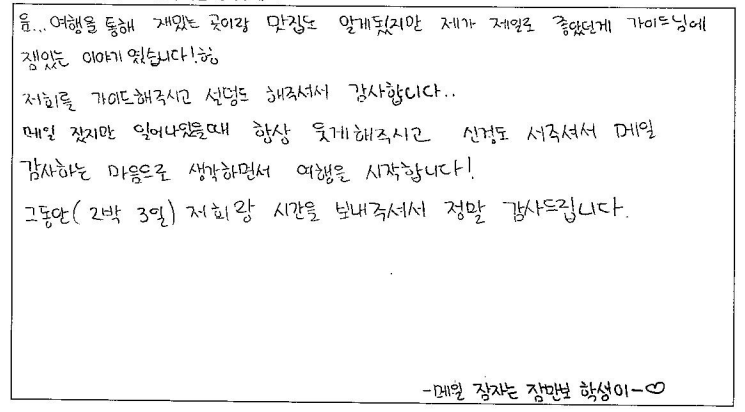 음... 여행을 통해 재밌는 곳이랑 맛집도 알게됬지만 제가 제일로 좋았던게 가이드님에
잼있는 이야기였습니다!항
저희를 가이드해주시고 설덩도 해주셔서 감사합니다..
메일 잤지만 일어나있을때 항상 웃게해주시고 신경도 서주셔서 메일
감사하는 마음으로 생각하면서 여행을 시작합니다!
그동안(2박 3일) 저희랑 시간을 보내주셔서 정말 감사드립니다.
-메일 잠자는 잠만보 학생이-♡